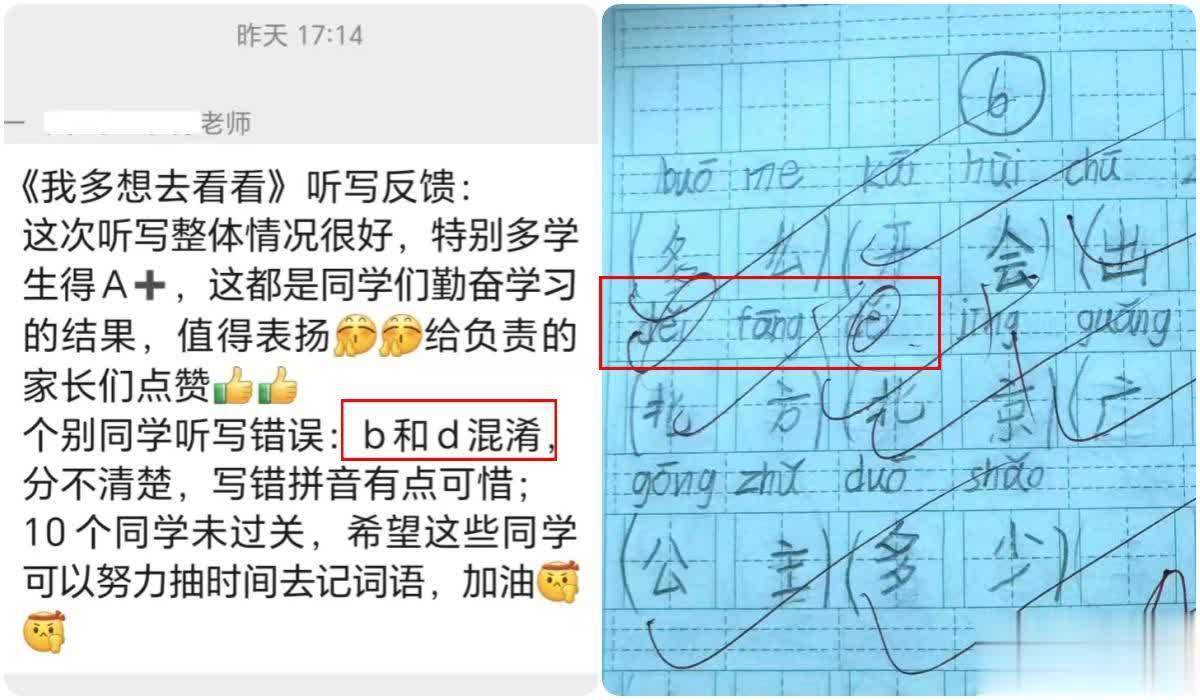 昨天 17:14
老师
《我多想去看看》听写反馈：
这次听写整体情况很好，特别多学
生得A➕，这都是同学们勤奋学习
的结果，值得表扬🤭🤭给负责的
家长们点赞👍👍
个别同学听写错误：b和d混淆，
分不清楚，写错拼音有点可惜；
10个同学未过关，希望这些同学
可以努力抽时间去记词语，加油
6
buō me kāi hùi chū
(多 么)(开 会)(出
děi fāng děi jīng guǎng
(北 方)(北 京)(广
gōng zhǔ duō shǎo
(公 主)(多 少)